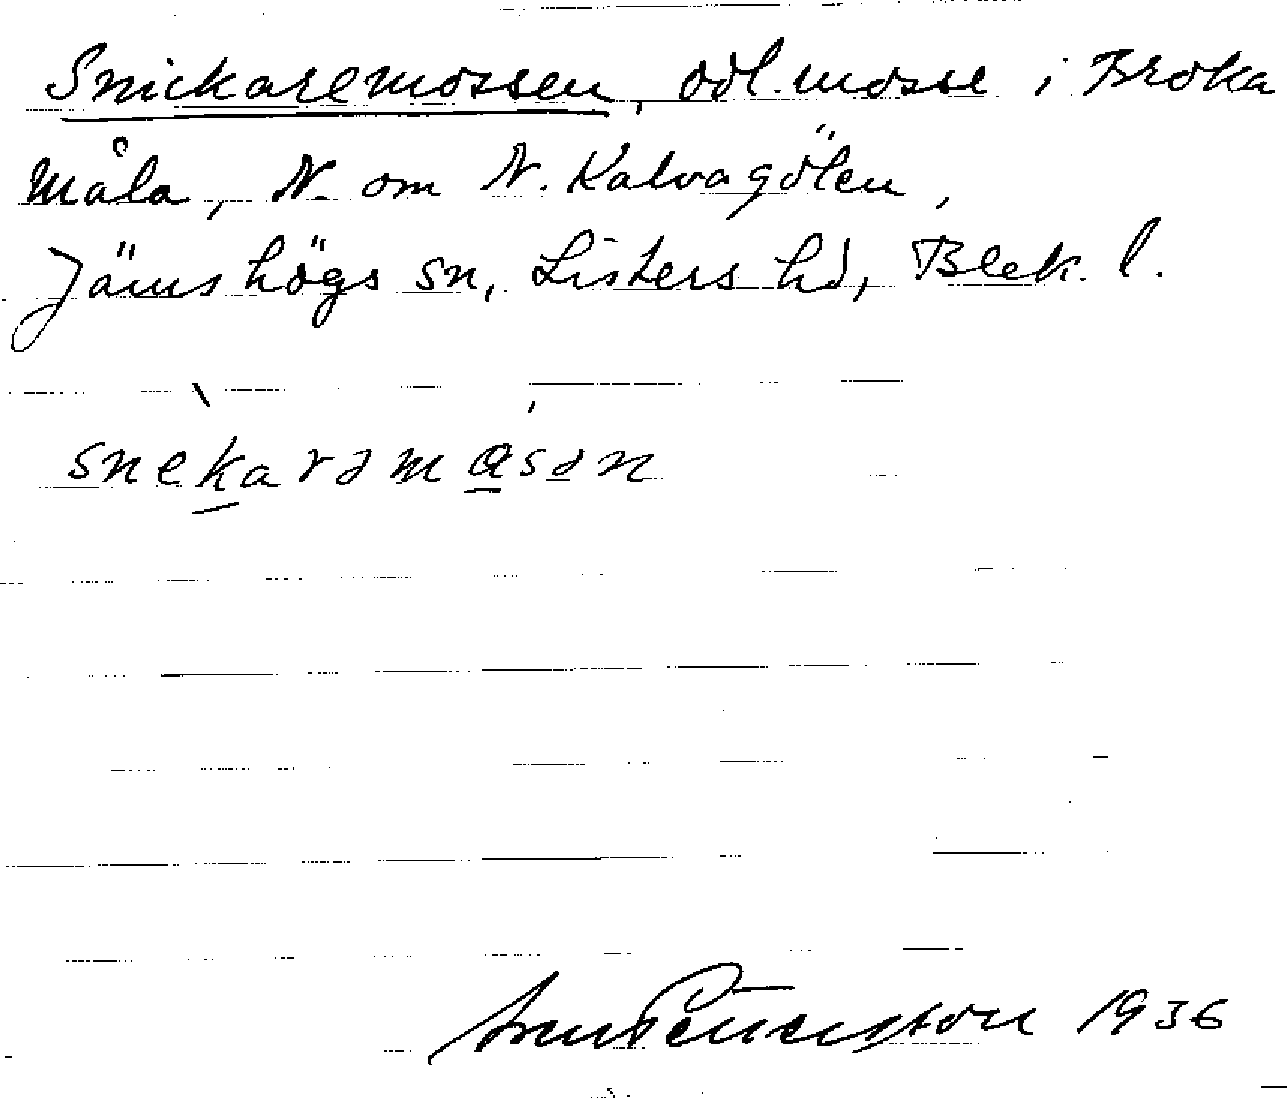 Snickaremossen, odl. mosse i Broka
måla, N. om N. Kalvagölen,
Jämshögs sn, Listers hd, Blek. l.
snekarəmɑsən
Pettersson 1936